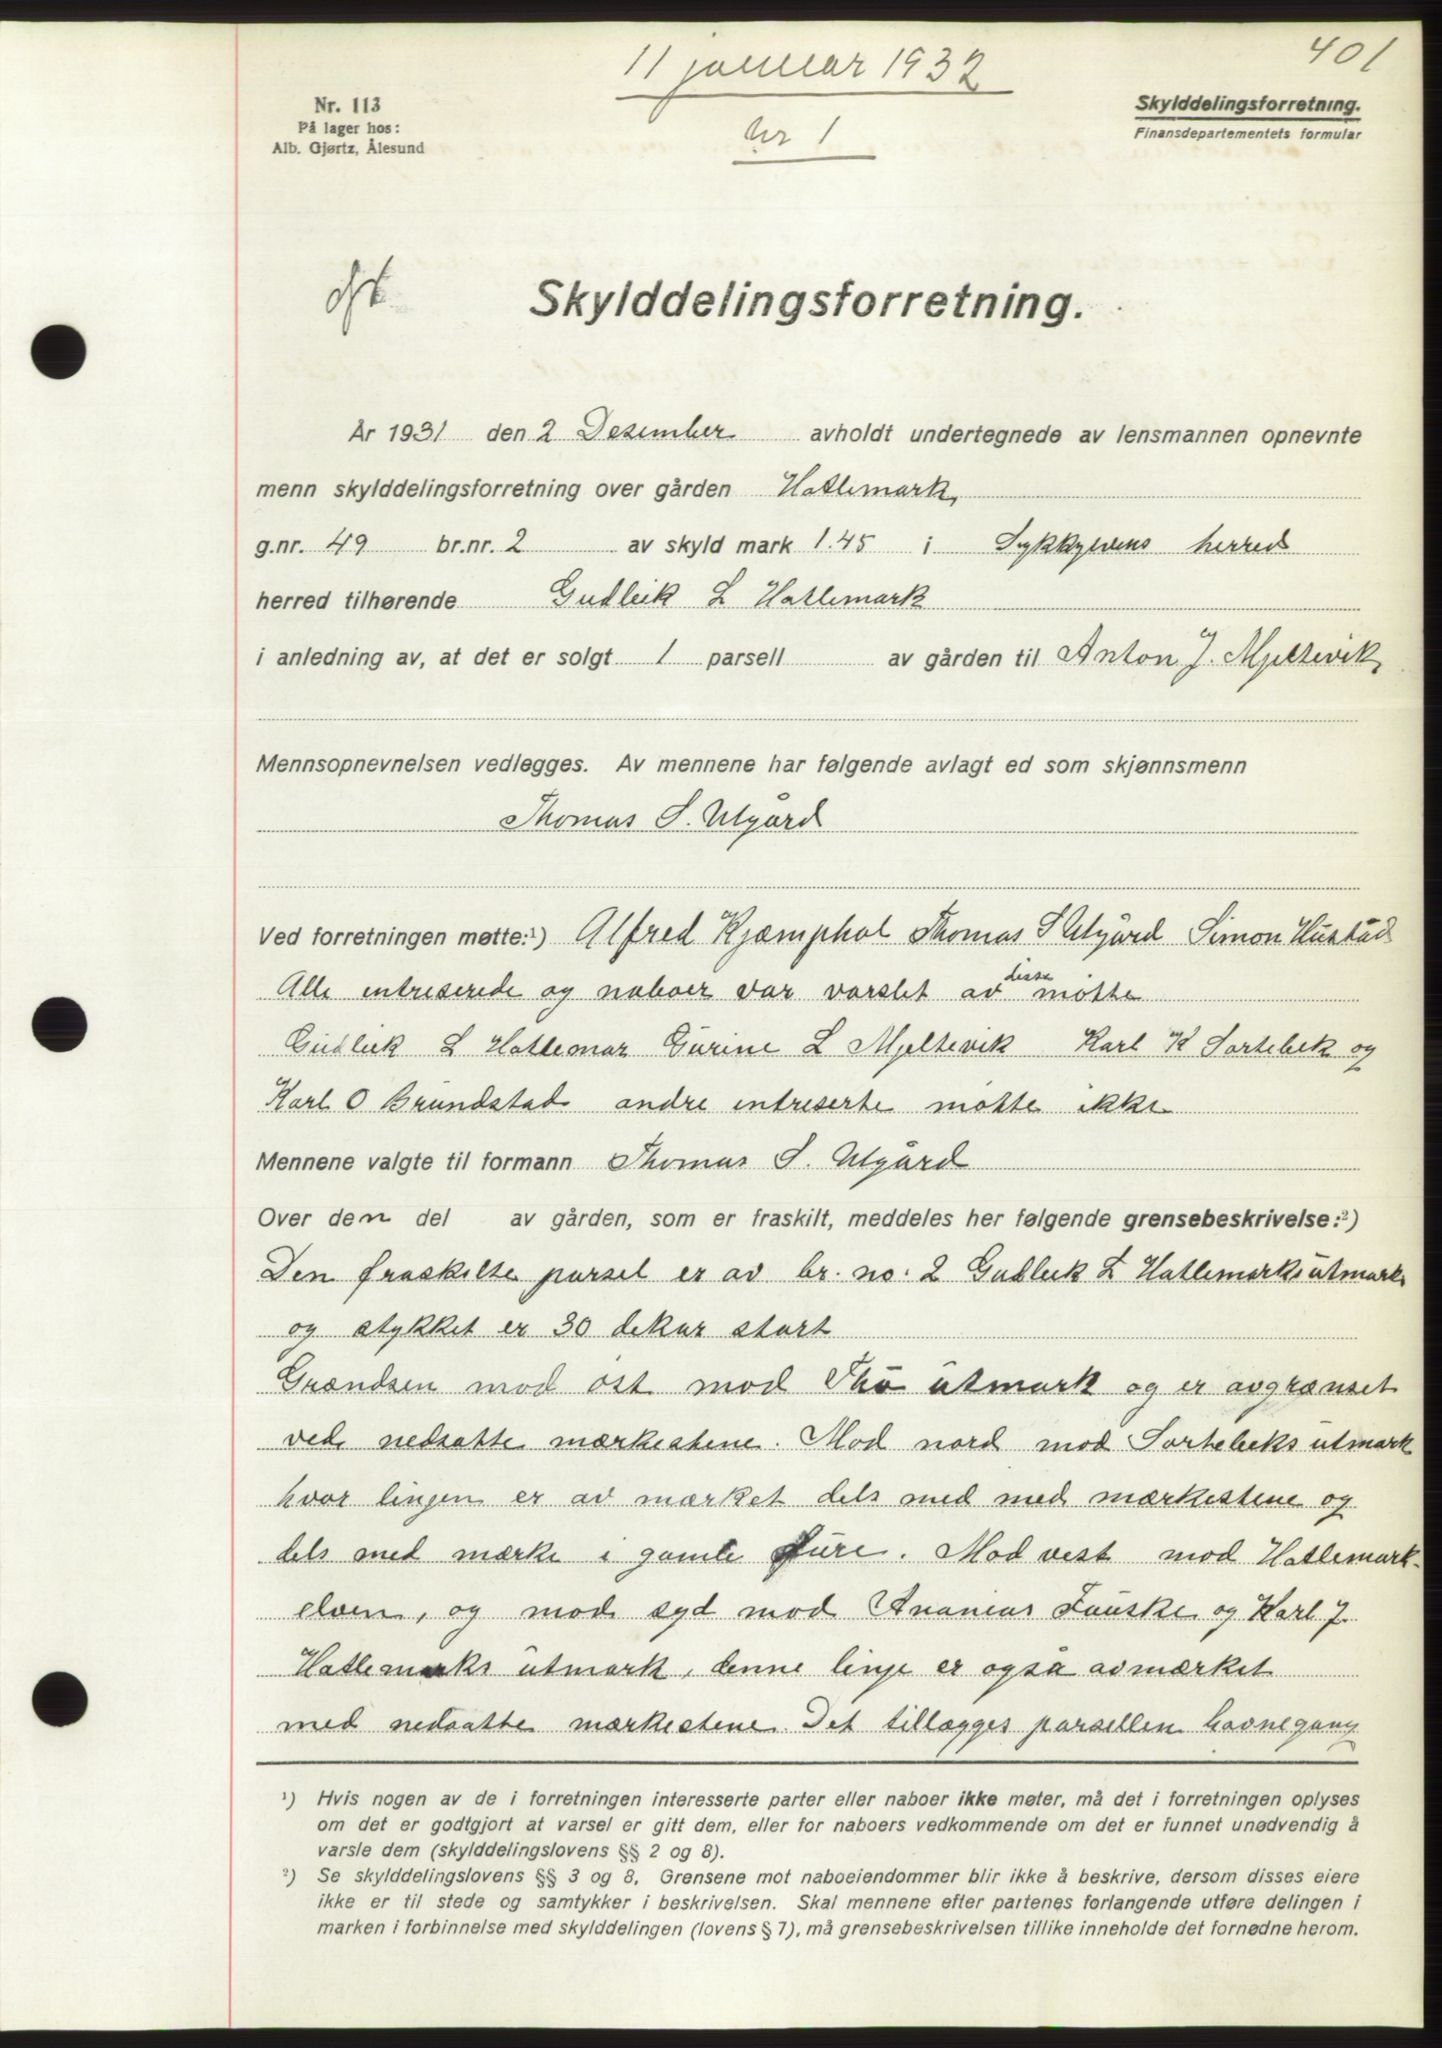 401
11 januar 1932
Nr 1
Nr. 113
På lager hos:
Alb. Gjørtz, Ålesund
Skylddelingsforretning.
Finansdepartementets formular
Skylddelingsforretning.
År 1931 den 2 Desember avholdt undertegnede av lensmannen opnevnte
menn skylddelingsforretning over gården Hatlemark,
g.nr. 49 br.nr. 2 av skyld mark 1.45 i Sykkylvens herred
herred tilhørende Gudleik L Hatlemark
i anledning av, at det er solgt 1 parsell av gården til Anton J. Mjeltevik,
Mennsopnevnelsen vedlegges. Av mennene har følgende avlagt ed som skjønnsmenn
Thomas S. Utgård
Ved forretningen møtte:¹) Alfred Kjæmphol Thomas S Utgård Simon Hustad
Alle entreserede og naboer var varslet av disse møtte
Gudleik L Hatlemar Gurine L Mjeltevik Karl K Sortebek og
Karl O Brundstad andre intreserte møtte ikke
Mennene valgte til formann Thomas S. Utgård
Over den del av gården, som er fraskilt, meddeles her følgende grensebeskrivelse:²)
Den fraskilte parsel er av br. no. 2 Gudleik L Hatlemarks utmark
og stykket er 30 dekar stort
Grændsen mod øst mod Thø utmark og er avgrænset
ved nedsatte mærkestene. Mod nord mod Sortebeks utmark
hvor linjen er av mærket dels med med mærkestene og
dels med mærke i gamle fure. Mod vest mod Hatlemark-
elven, og mod syd mod Ananias Fauske og Karl J.
Hatlemarks utmark, denne linje er også avmærket
med nedsatte mærkestene. Det tillægges parsellen havnegang
¹) Hvis nogen av de i forretningen interesserte parter eller naboer ikke møter, må det i forretningen oplyses
om det er godtgjort at varsel er gitt dem, eller for naboers vedkommende om det er funnet unødvendig å
varsle dem (skylddelingslovens §§ 2 og 8).
²) Se skylddelingslovens §§ 3 og 8. Grensene mot naboeiendommer blir ikke å beskrive, dersom disses eiere
ikke er til stede og samtykker i beskrivelsen. Skal mennene efter partenes forlangende utføre delingen i
marken i forbinnelse med skylddelingen (lovens § 7), må grensebeskrivelsen tillike inneholde det fornødne herom.